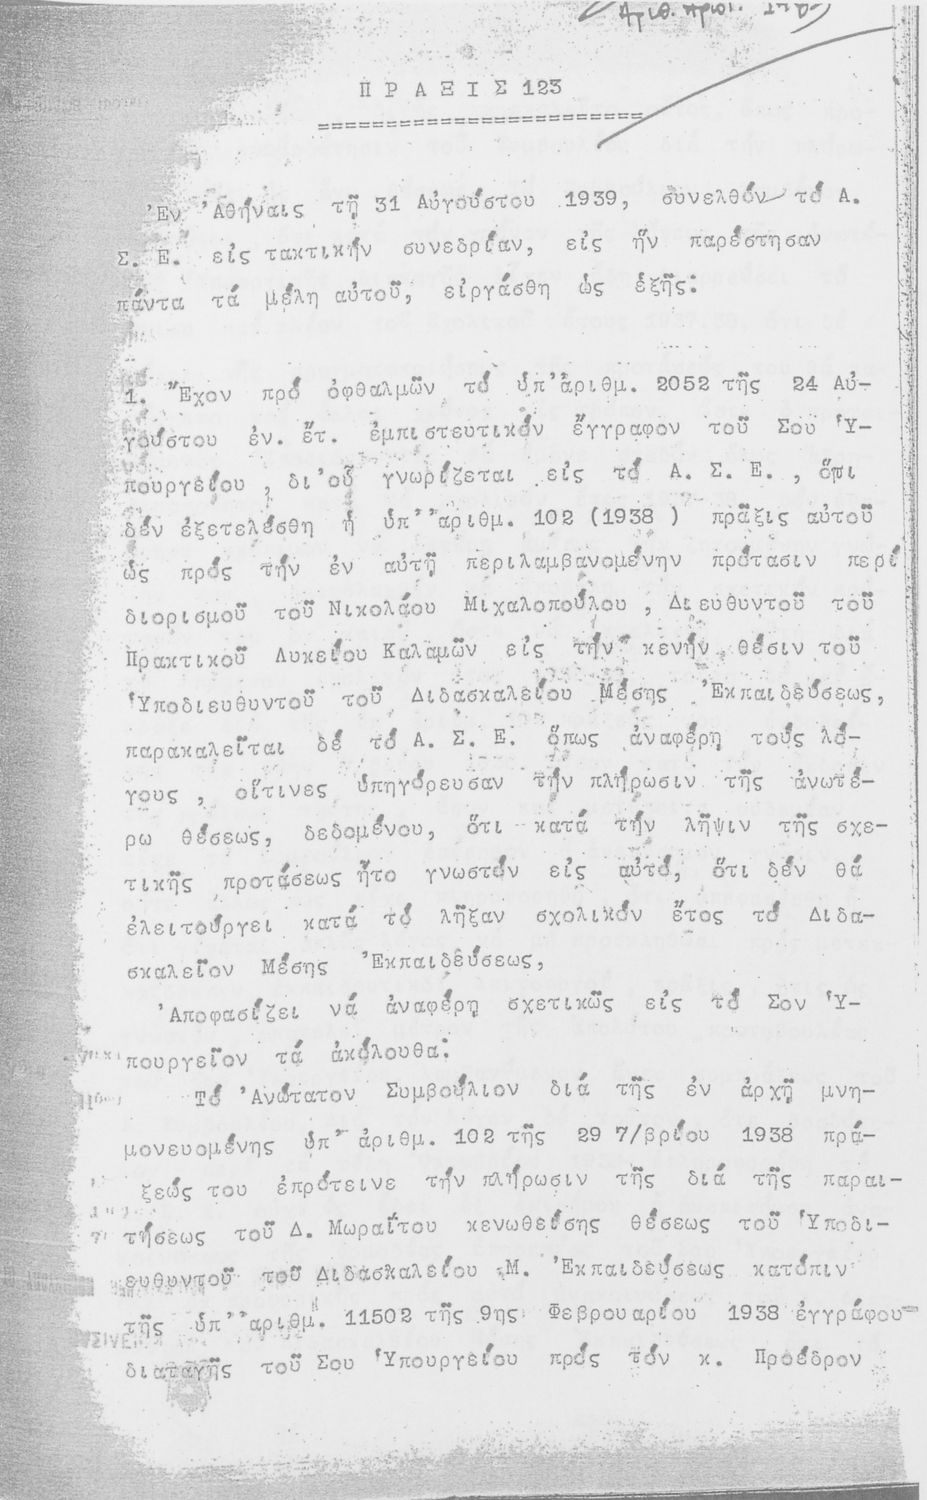 Π Ρ Α Ξ Ι Σ 123
========================
Ἐν Ἀθήναις τῇ 31 Αὐγούστου 1939, συνελθόν τό Α.
Σ. Ε. εἰς τακτικήν συνεδρίαν, εἰς ἥν παρέστησαν
πάντα τά μέλη αὐτοῦ, εἰργάσθη ὡς ἑξῆς:
1. Ἔχον πρό ὀφθαλμῶν τό ὑπ' ἀριθμ. 2052 τῆς 24 Αὐ-
γούστου ἐν. ἔτ. ἐμπιστευτικόν ἔγγραφον τοῦ Σοῦ Ὑ-
πουργείου , δι' οὗ γνωρίζεται εἰς τό Α. Σ. Ε. , ὅτι
δέν ἐξετελέσθη ἡ ὑπ' ἀριθμ. 102 (1938 ) πρᾶξις αὐτοῦ
ὡς πρός τήν ἐν αὐτῇ περιλαμβανομένην πρότασιν περί
διορισμοῦ τοῦ Νικολάου Μιχαλοπούλου , Διευθυντοῦ τοῦ
Πρακτικοῦ Λυκείου Καλαμῶν εἰς τήν κενήν θέσιν τοῦ
Ὑποδιευθυντοῦ τοῦ Διδασκαλείου Μέσης Ἐκπαιδεύσεως,
παρακαλεῖται δέ τό Α. Σ. Ε. ὅπως ἀναφέρῃ τούς λό-
γους , οἵτινες ὑπηγόρευσαν τήν πλήρωσιν τῆς ἀνωτέ-
ρω θέσεως, δεδομένου, ὅτι κατά τήν λῆψιν τῆς σχε-
τικῆς προτάσεως ἦτο γνωστόν εἰς αὐτό, ὅτι δέν θά
ἐλειτούργει κατά τό λῆξαν σχολικόν ἔτος τό Διδα-
σκαλεῖον Μέσης Ἐκπαιδεύσεως,
Ἀποφασίζει νά ἀναφέρῃ σχετικῶς εἰς τό Σον Ὑ-
πουργεῖον τά ἀκόλουθα:
Τό Ἀνώτατον Συμβούλιον διά τῆς ἐν ἀρχῇ μνη-
μονευομένης ὑπ' ἀριθμ. 102 τῆς 29 7/βρίου 1938 πρά-
ξεώς του ἐπρότεινε τήν πλήρωσιν τῆς διά τῆς παραι-
τήσεως τοῦ Δ. Μωραΐτου κενωθείσης θέσεως τοῦ Ὑποδι-
ευθυντοῦ τοῦ Διδασκαλείου Μ. Ἐκπαιδεύσεως κατόπιν
τῆς ὑπ' ἀριθμ. 11502 τῆς 9ης Φεβρουαρίου 1938 ἐγγράφου
διαταγῆς τοῦ Σου Ὑπουργείου πρός τόν κ. Πρόεδρον